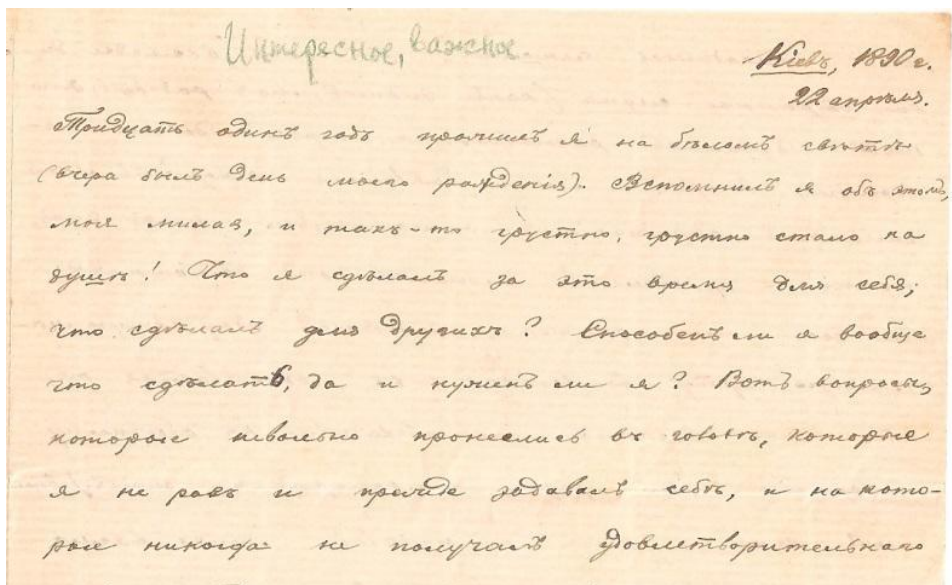 Интересное, важное
Кіевъ, 1890 г.
22 апрѣля.
Тридцать одинъ годъ прожилъ я на бѣломъ свѣтѣ
(вчера былъ день моего рожденія). Вспомнилъ я объ этомъ,
моя милая, и такъ-то грустно, грустно стало на
душѣ! Что я сдѣлалъ за это время для себя;
что сдѣлалъ для другихъ? Способенъ ли я вообще
что сдѣлать, да и нуженъ ли я? Вотъ вопросы,
которые невольно пронеслись въ головѣ, которые
я не разъ и прежде задавалъ себѣ, и на кото-
рые никогда не получалъ удовлетворительнаго